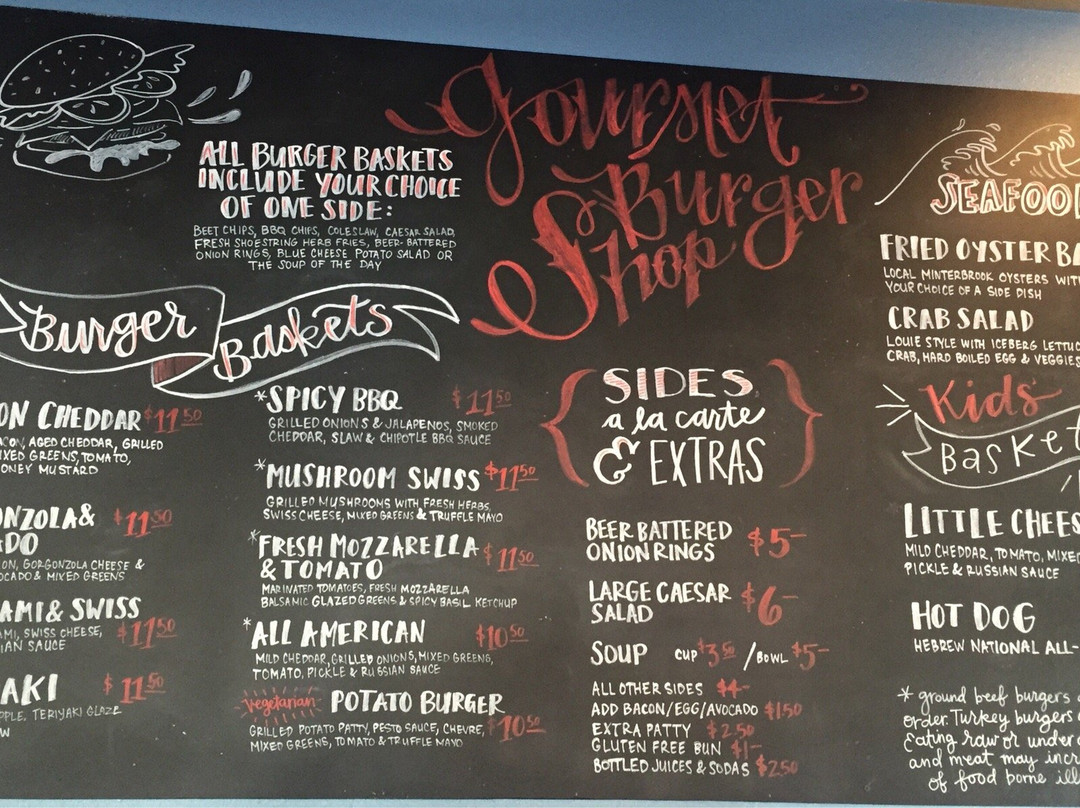 Gourmet
Burger
Shop
ALL BURGER BASKETS
INCLUDE YOUR CHOICE
OF ONE SIDE:
BEET CHIPS, BBQ CHIPS, COLESLAW, CAESAR SALAD,
FRESH SHOESTRING HERB FRIES, BEER-BATTERED
ONION RINGS, BLUE CHEESE POTATO SALAD OR
THE SOUP OF THE DAY
Burger Baskets
ON CHEDDAR $11.50
ACON, AGED CHEDDAR, GRILLED
IXED GREENS, TOMATO,
ONEY MUSTARD
NZOLA & $11.50
ADO
ON, GORGONZOLA CHEESE &
OCADO & MIXED GREENS
AMI & SWISS
AMI, SWISS CHEESE, $11.50
IAN SAUCE
AKI $11.50
PPLE, TERIYAKI GLAZE
W
*SPICY BBQ $11.50
GRILLED ONIONS & JALAPENOS, SMOKED
CHEDDAR, SLAW & CHIPOTLE BBQ SAUCE
*MUSHROOM SWISS $11.50
GRILLED MUSHROOMS WITH FRESH HERBS,
SWISS CHEESE, MIXED GREENS & TRUFFLE MAYO
*FRESH MOZZARELLA $11.50
& TOMATO
MARINATED TOMATOES, FRESH MOZZARELLA
BALSAMIC GLAZED GREENS & SPICY BASIL KETCHUP
*ALL AMERICAN $10.50
MILD CHEDDAR, GRILLED ONIONS, MIXED GREENS,
TOMATO, PICKLE & RUSSIAN SAUCE
Vegetarian POTATO BURGER
GRILLED POTATO PATTY, PESTO SAUCE, CHEVRE, $10.50
MIXED GREENS, TOMATO & TRUFFLE MAYO
SIDES,
a la carte
& EXTRAS
BEER BATTERED
ONION RINGS $5-
LARGE CAESAR
SALAD $6-
SOUP CUP $3.50 /BOWL $5-
ALL OTHER SIDES $4-
ADD BACON/EGG/AVOCADO $1.50
EXTRA PATTY $2.50
GLUTEN FREE BUN $1-
BOTTLED JUICES & SODAS $2.50
SEAFOO
FRIED OYSTER BA
LOCAL MINTERBROOK OYSTERS WIT
YOUR CHOICE OF A SIDE DISH
CRAB SALAD
LOUIE STYLE WITH ICEBERG LETTUC
CRAB, HARD BOILED EGG & VEGGIES
Kids
Basket
LITTLE CHEES
MILD CHEDDAR, TOMATO, MIXED
PICKLE & RUSSIAN SAUCE
HOT DOG
HEBREW NATIONAL ALL-
* ground beef burgers
order. Turkey burgers
Eating raw or under
and meat may incr
of food borne ill